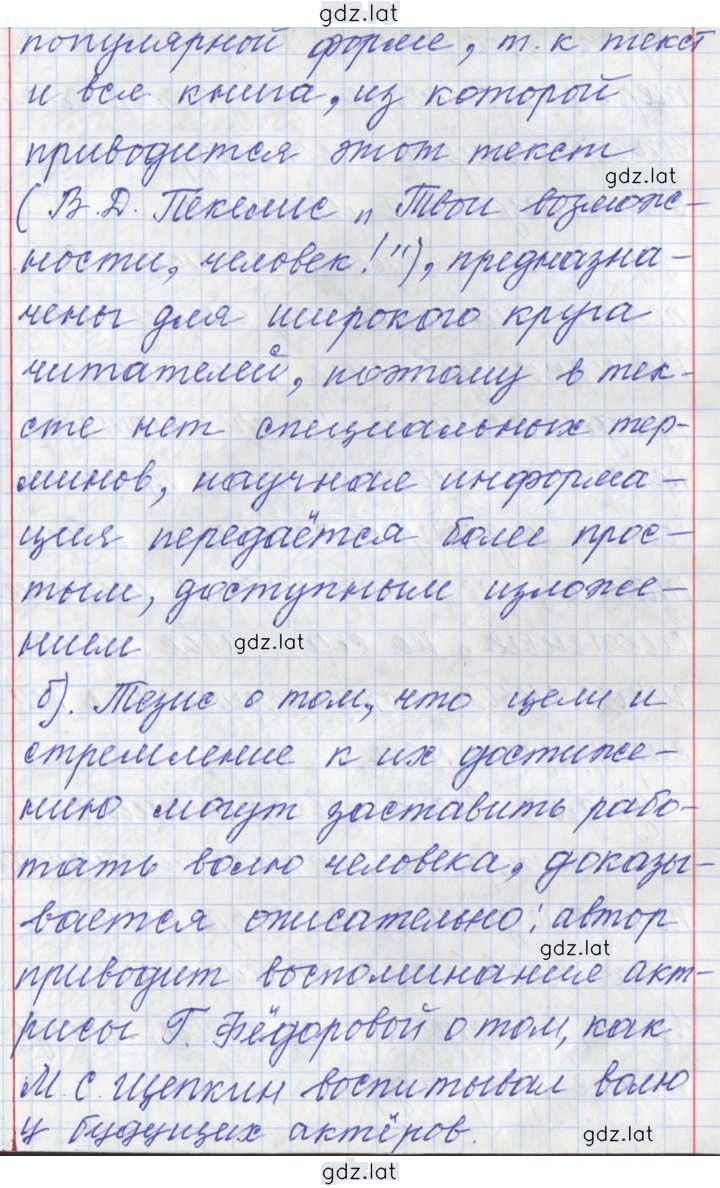 gdz.lat
популярной форме, т.к текст
и вся книга, из которой
приводится этот текст
gdz.lat
(В.Д. Пекелис „Твои возмож-
ности, человек!"), предназна-
чены для широкого круга
читателей, поэтому в тек-
сте нет специальных тер-
минов, научная информа-
ция передаётся более прос-
тым, доступным изложе-
нием
gdz.lat
б). Тезис о том, что цели и
стремление к их достиже-
нию могут заставить рабо-
тать волю человека, доказы-
вается описательно: автор
gdz.lat
приводит воспоминание акт-
рисы Г. Фёдоровой о том, как
М.С. Щепкин воспитывал волю
у будущих актёров.
gdz.lat
gdz.lat